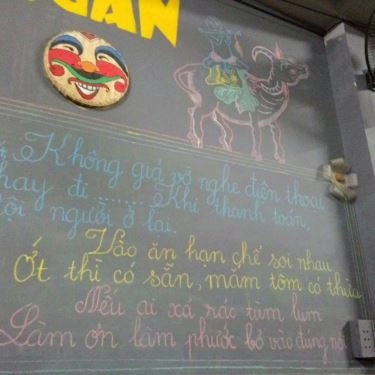 GAN
Không giả vờ nghe điện thoại
hay đi ...... Khi thanh toán,
người ở lại.
Vào ăn hạn chế soi nhau
Ớt thì có sẵn, mắm tôm có thừa
Nếu ai xả rác tùm lum
Làm ơn làm phước bỏ vào đúng nơi